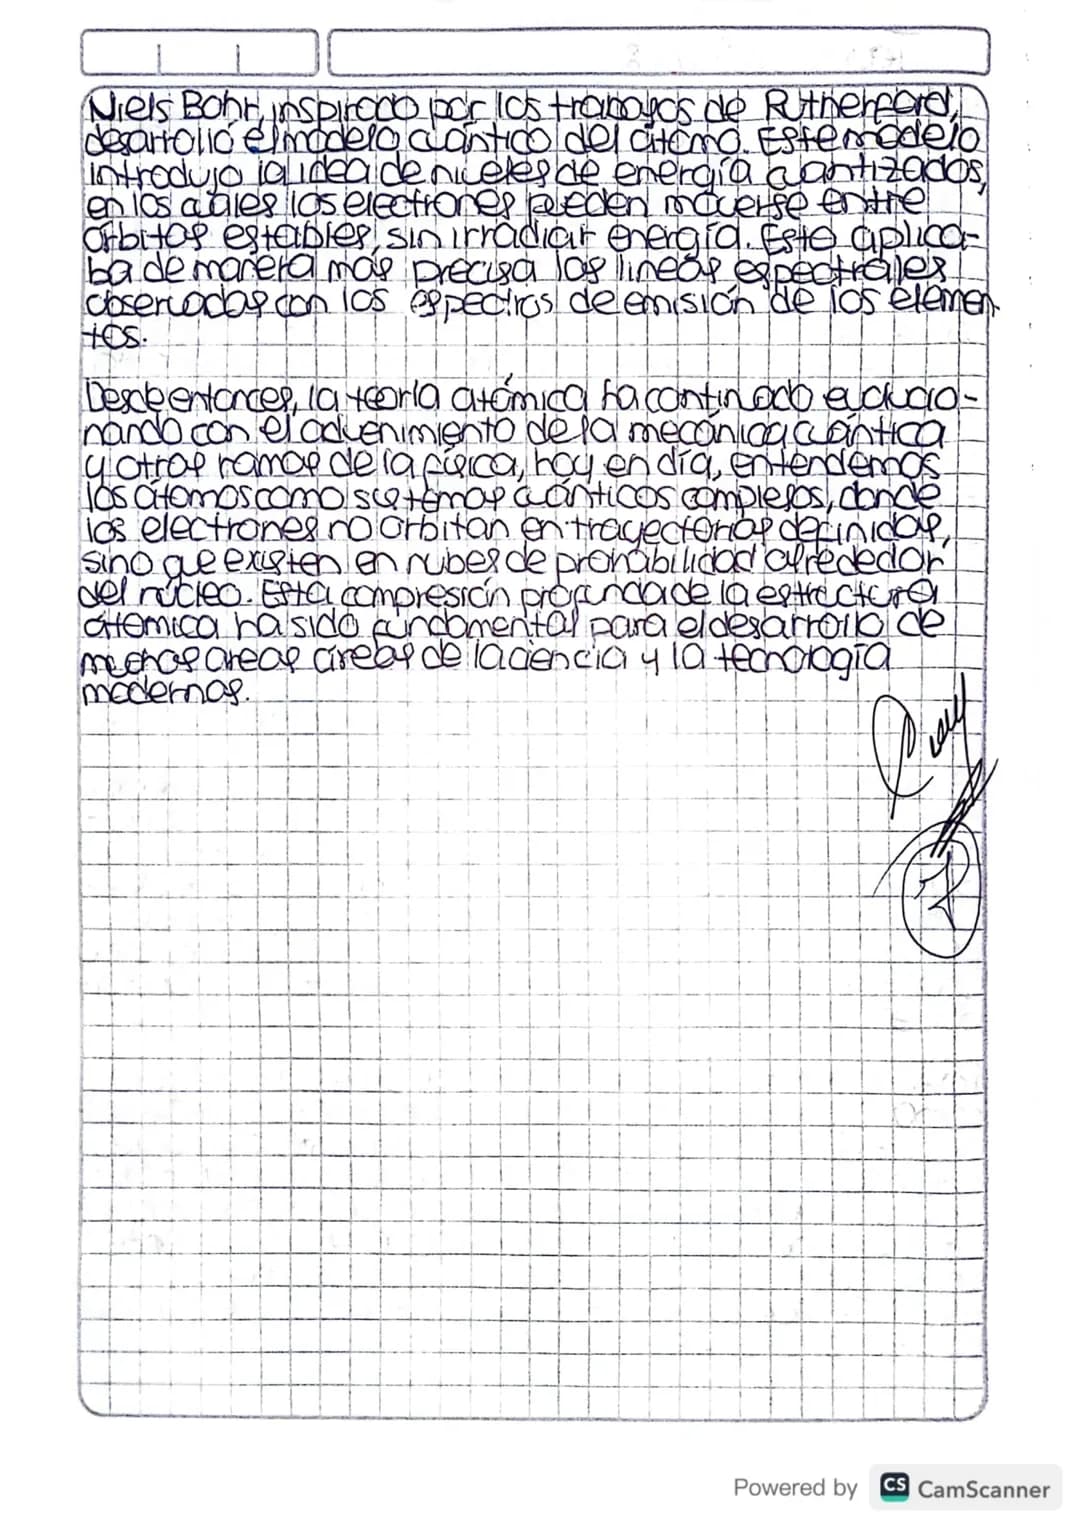 Niels Bohr, inspirado por los trabajos de Rutherford,
desarrolló el modelo cuántico del átomo. Este modelo
introdujo la idea de niveles de energía cuantizados,
en los cuales los electrones pueden moverse entre
órbitas estables sin irradiar energía. Esto aplica-
ba de manera más precisa las líneas espectrales
observadas con los espectros de emisión de los elemen
tos.
Desde entonces, la teoría atómica ha continado evolucio-
nando con el advenimiento de la mecánica cuántica
y otras ramas de la física, hoy en día, entendemos
los átomos como sistemas cuánticos complejos, donde
los electrones no orbitan en trayectorias definidas,
sino que existen en nubes de probabilidad alrededor
del núcleo. Esta compresión profunda de la estructura
atómica ha sido fundamental para el desarrollo de
muchas areas áreas de la ciencia y la tecnología
modernas.
Powered by CS CamScanner